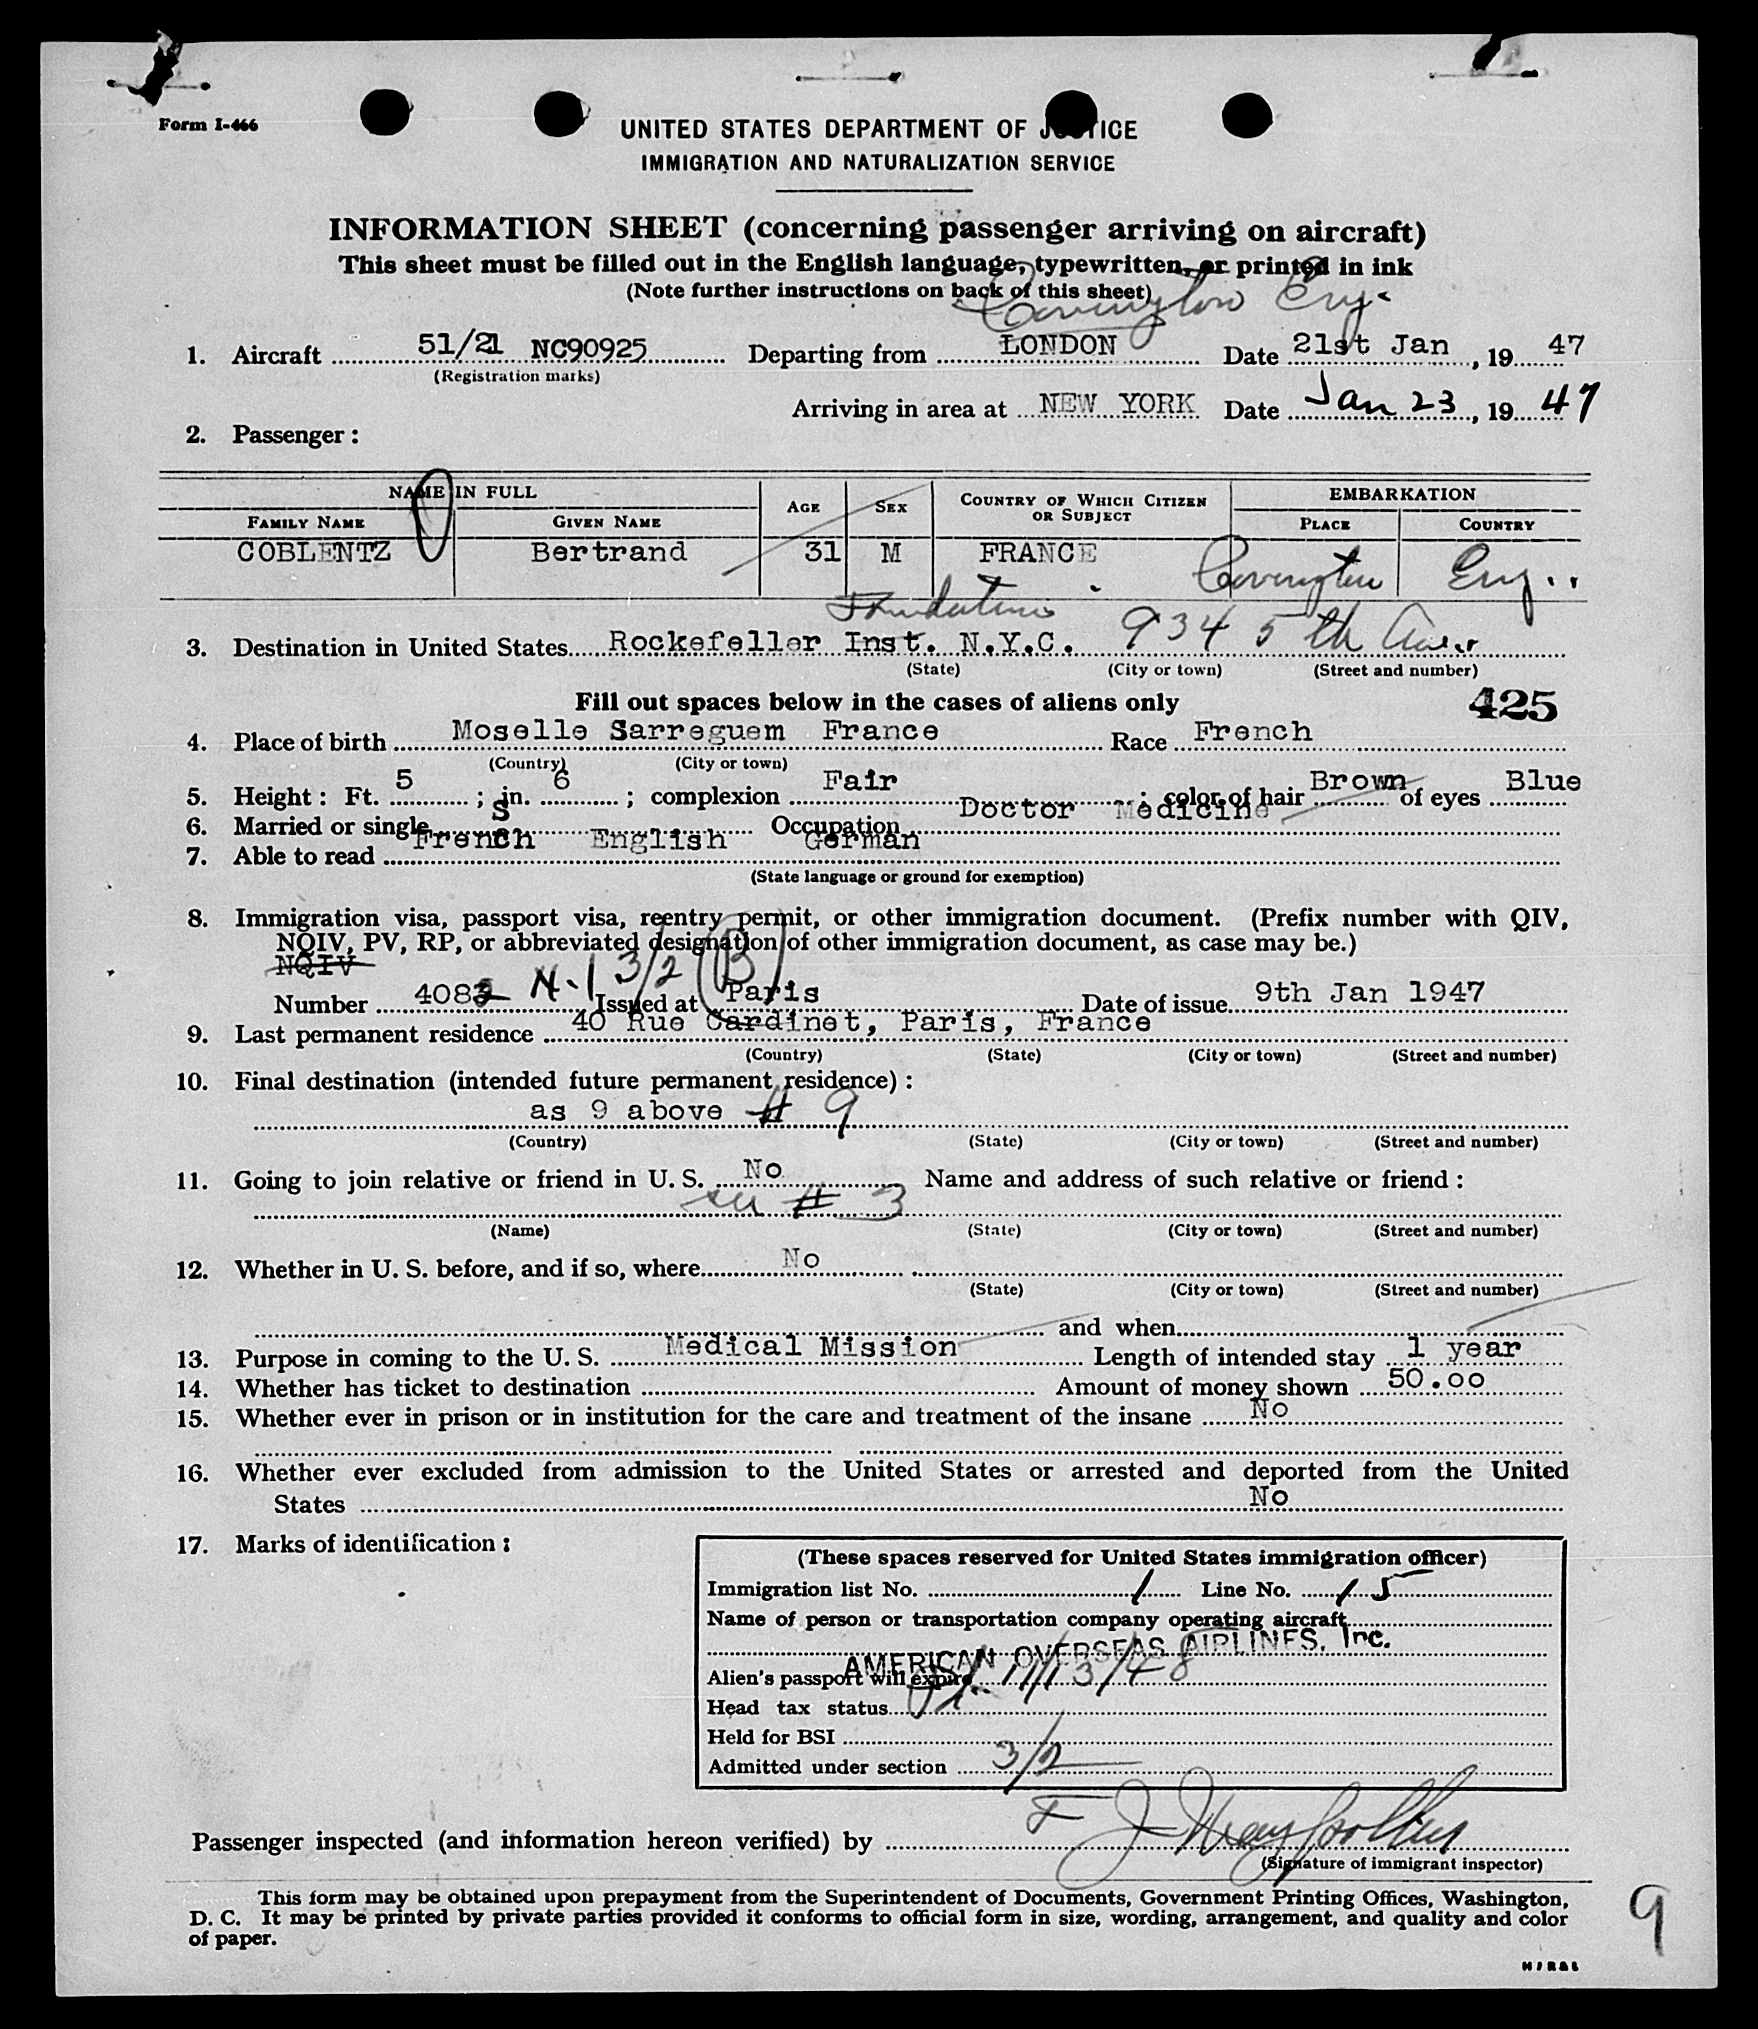 Form I-466
UNITED STATES DEPARTMENT OF JUSTICE
IMMIGRATION AND NATURALIZATION SERVICE
INFORMATION SHEET (concerning passenger arriving on aircraft)
This sheet must be filled out in the English language, typewritten, or printed in ink
(Note further instructions on back of this sheet)
Covington Eng.
1. Aircraft 51/21 NC90925 Departing from LONDON Date 21st Jan, 19 47
(Registration marks)
Arriving in area at NEW YORK Date Jan 23, 19 47
2. Passenger:
NAME IN FULL AGE SEX COUNTRY OF WHICH CITIZEN OR SUBJECT EMBARKATION
FAMILY NAME GIVEN NAME PLACE COUNTRY
COBLENTZ Bertrand 31 M FRANCE Covington Eng.
Foundation
3. Destination in United States Rockefeller Inst. N.Y.C. 934 5th Ave.
(State) (City or town) (Street and number)
Fill out spaces below in the cases of aliens only 425
4. Place of birth Moselle Sarreguem France Race French
(Country) (City or town)
5. Height: Ft. 5; in. 6; complexion Fair; color of hair Brown of eyes Blue
6. Married or single S Occupation Doctor Medicine
7. Able to read French English German
(State language or ground for exemption)
8. Immigration visa, passport visa, reentry permit, or other immigration document. (Prefix number with QIV,
NQIV, PV, RP, or abbreviated designation of other immigration document, as case may be.)
NQIV
Number 4082 3/2 (B) Issued at Paris Date of issue 9th Jan 1947
9. Last permanent residence 40 Rue Cardinet, Paris, France
(Country) (State) (City or town) (Street and number)
10. Final destination (intended future permanent residence):
as 9 above # 9
(Country) (State) (City or town) (Street and number)
11. Going to join relative or friend in U. S. No Name and address of such relative or friend:
# 3
(Name) (State) (City or town) (Street and number)
12. Whether in U. S. before, and if so, where No
(State) (City or town) (Street and number)
and when
13. Purpose in coming to the U. S. Medical Mission Length of intended stay 1 year
14. Whether has ticket to destination Amount of money shown 50.00
15. Whether ever in prison or in institution for the care and treatment of the insane No
16. Whether ever excluded from admission to the United States or arrested and deported from the United
States No
17. Marks of identification:
(These spaces reserved for United States immigration officer)
Immigration list No. 1 Line No. 15
Name of person or transportation company operating aircraft
AMERICAN OVERSEAS AIRLINES, Inc.
Alien's passport will expire 11/13/48
Head tax status
Held for BSI
Admitted under section 3/2
Passenger inspected (and information hereon verified) by
(Signature of immigrant inspector)
This form may be obtained upon prepayment from the Superintendent of Documents, Government Printing Offices, Washington,
D. C. It may be printed by private parties provided it conforms to official form in size, wording, arrangement, and quality and color
of paper.
9